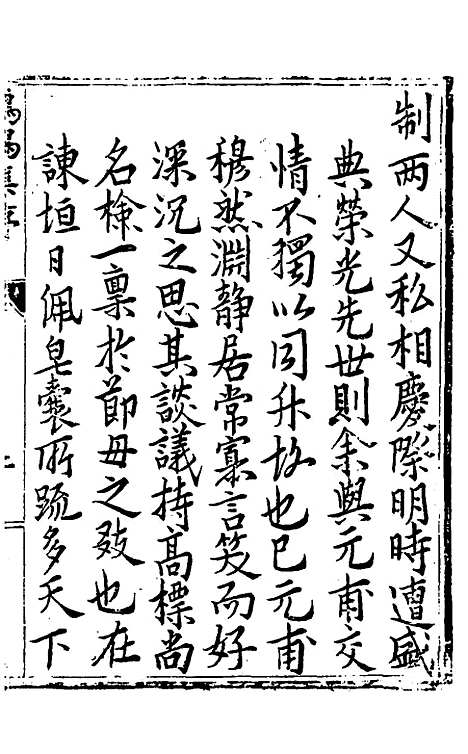 制兩人又私相慶際明時遭盛
典榮光先世則余與元甫交
情不獨以同升故也已元甫
穆然淵靜居常寡言笑而好
深沉之思其談議持高標尚
名檢一稟於節母之教也在
諫垣日佩皂囊所疏多天下